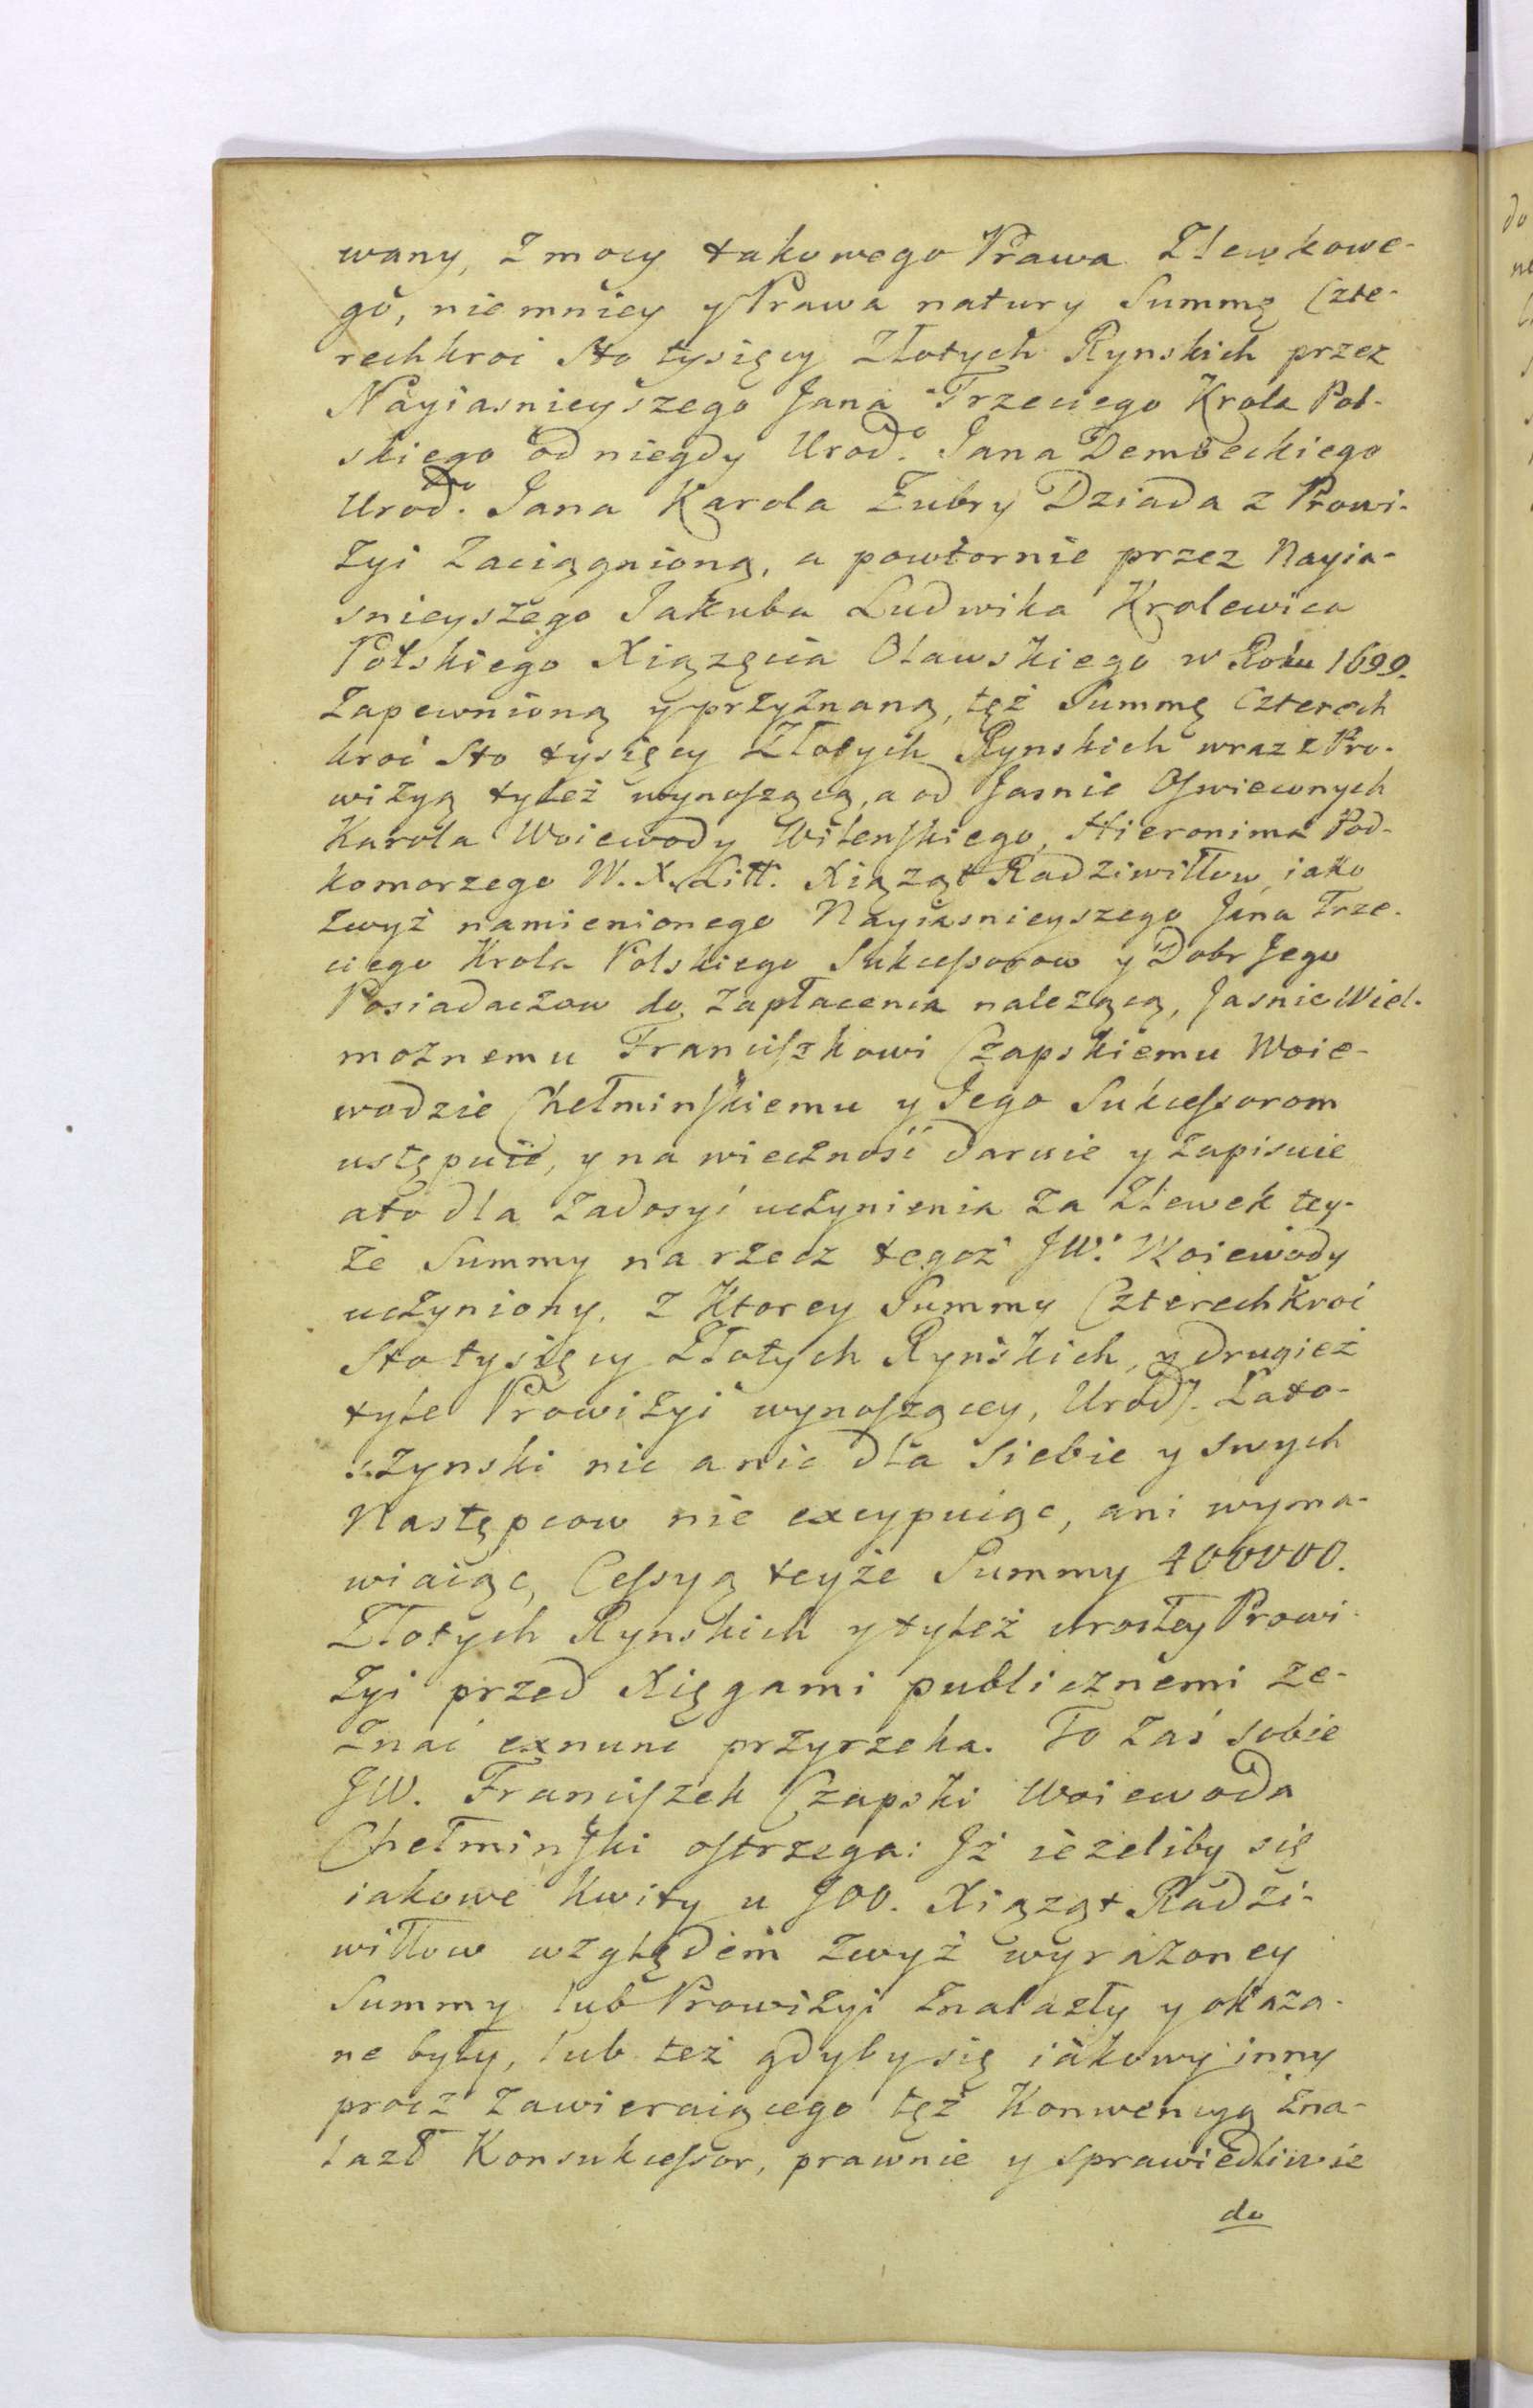 wany, z mocy takowego Prawa Zlewkowe-
go, niemniey y Prawa natury Summę Czte-
rechkroi Sto tysięcy Złotych Rynskich przez
Nayiasnieyszego Jana Trzeciego Krola Pol-
skiego od niegdy Urod.go Jana Dembeckiego
Urod.go Jana Karola Zubry Dziada z Prowi-
zyi zaciągnioną, a powtornie przez Nayia-
snieyszego Jakuba Ludwika Krolewica
Polskiego Xiązęcia Oławskiego w Roku 1699.
zapewnioną y przyznaną, tęż Summę czterech
kroć Sto tysięcy Złotych Rynskich wraz z Pro-
wizyą tyleż wynoszącą, a od Jasnie Oswieconych
Karola Woiewody Wilenskiego, Hieronima Pod-
komorzego W. X. Litt. Xiąząt Radziwiłłow, iako
zwyż namienionego Nayiasnieyszego Jana Trze-
ciego Krola Polskiego Sukcessorow y Dobr Jego
Posiadaczow do zapłacenia nalezącą, Jasnie Wiel-
moznemu Franciszkowi Czapskiemu Woie-
wodzie Chełminskiemu y Jego Sukcessorom
ustępuie, y na wieczność daruie y zapisuie
a to dla zadosyć uczynienia za Zlewek tey-
że Summy na rzecz tegoż JW. Woiewody
uczyniony. Z Ktorey Summy Czterechkroć
Sto tysięcy Złotych Rynskich, y drugież
tyle Prowizyi wynoszącey, Urodz. Lato-
szynski nic a nic dla siebie y swych
Następcow nie excypuiąc, ani wyma-
wiaiąc, Cessyą teyże Summy 400000.
Złotych Rynskich y tyleż urosłey Prowi-
zyi przed Xięgami publicznemi ze-
znać exnunc przyrzeka. To zaś sobie
JW. Franciszek Czapski Woiewoda
Chełminski ostrzega: Jż ieżeliby się
iakowe Kwity u JOO. Xiąząt Radzi-
wiłłow względem zwyż wyrażoney
Summy lub Prowizyi znalazły y okaza-
ne były, lub też gdyby się iakowy inny
procz zawieraiącego tęż Konwencyą zna-
lazł Konsukcessor, prawnie y sprawiedliwie
do